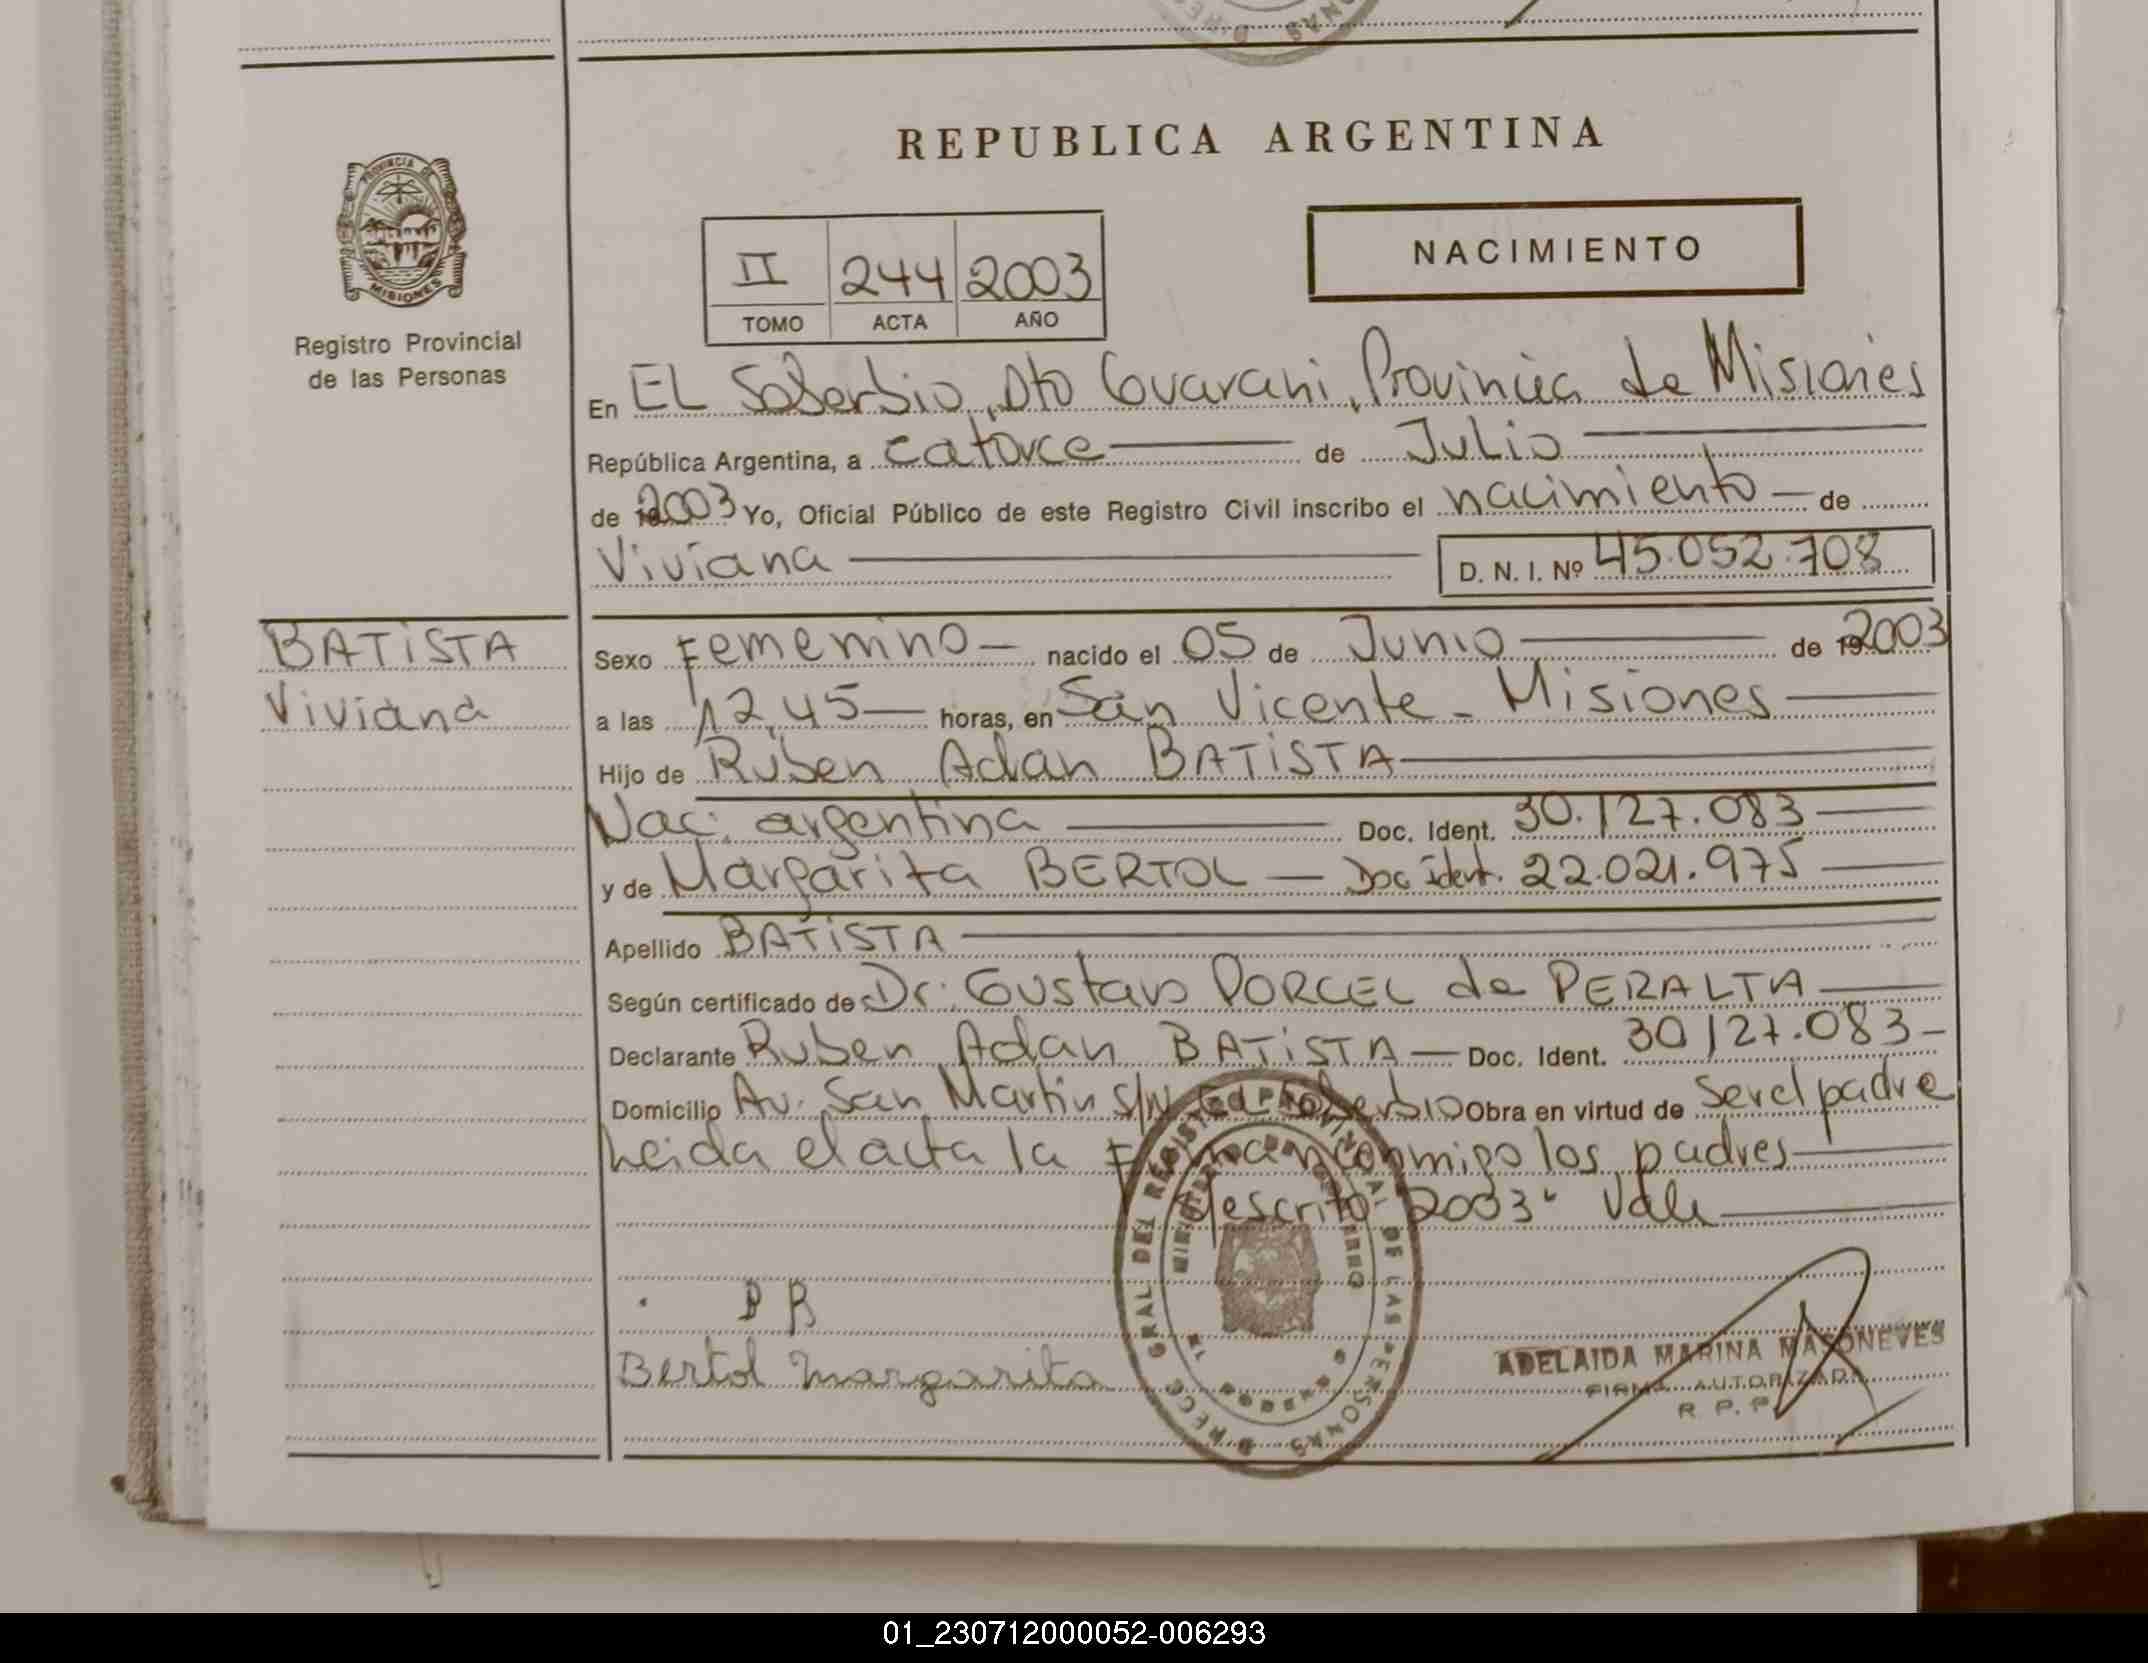 REPUBLICA ARGENTINA
PROVINCIA DE
MISIONES
Registro Provincial
de las Personas
II 244 2003
TOMO ACTA AÑO
NACIMIENTO
En EL Soberbio, Dto Guarani, Provincia de Misiones
República Argentina, a catorce de Julio
de 2003 Yo, Oficial Público de este Registro Civil inscribo el nacimiento de
Viviana D. N. I. Nº 45.052.708
BATISTA
Viviana
Sexo Femenino nacido el 05 de Junio de 19 2003
a las 12,45 horas, en San Vicente - Misiones
Hijo de Ruben Adan BATISTA
Nac. argentina Doc. Ident. 30.127.083
y de Margarita BERTOL - Doc Ident. 22.021.975
Apellido BATISTA
Según certificado de Dr. Gustavo PORCEL de PERALTA
Declarante Ruben Adan BATISTA - Doc. Ident. 30127.083-
Domicilio Av. San Martin S/N El Soberbio Obra en virtud de Ser el padre
Leida el acta la Firman conmigo los padres
escrito "2003" Vale
Bertol Margarita
ADELAIDA MARINA MASONEVES
FIRMA AUTORIZADA
R. P. P.
GRAL DEL REGISTRO PROVINCIAL DE LAS PERSONAS
01_230712000052-006293